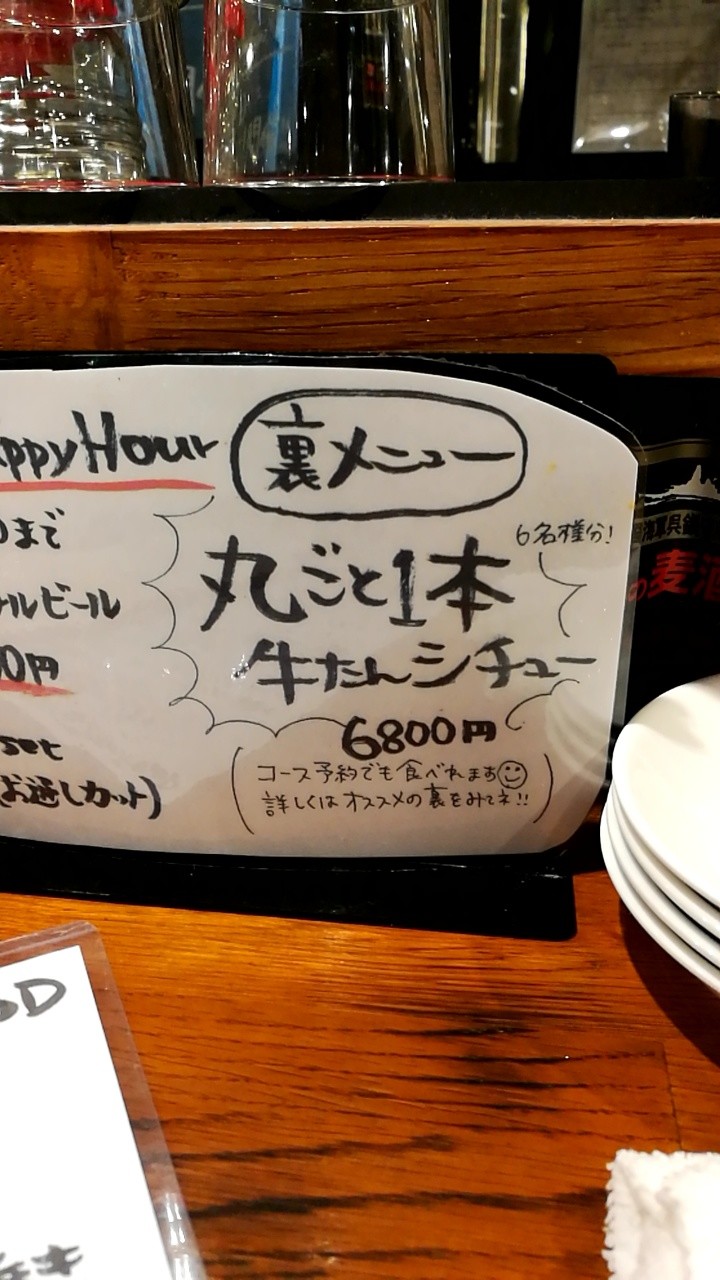 ppyHour
まで
ルビール
0円
set
(お通しカット)
裏メニュー
6名様分!
丸ごと1本
牛たんシチュー
6800円
(コース予約でも食べれます
詳しくはオススメの裏をみてネ!!)
の麦酒